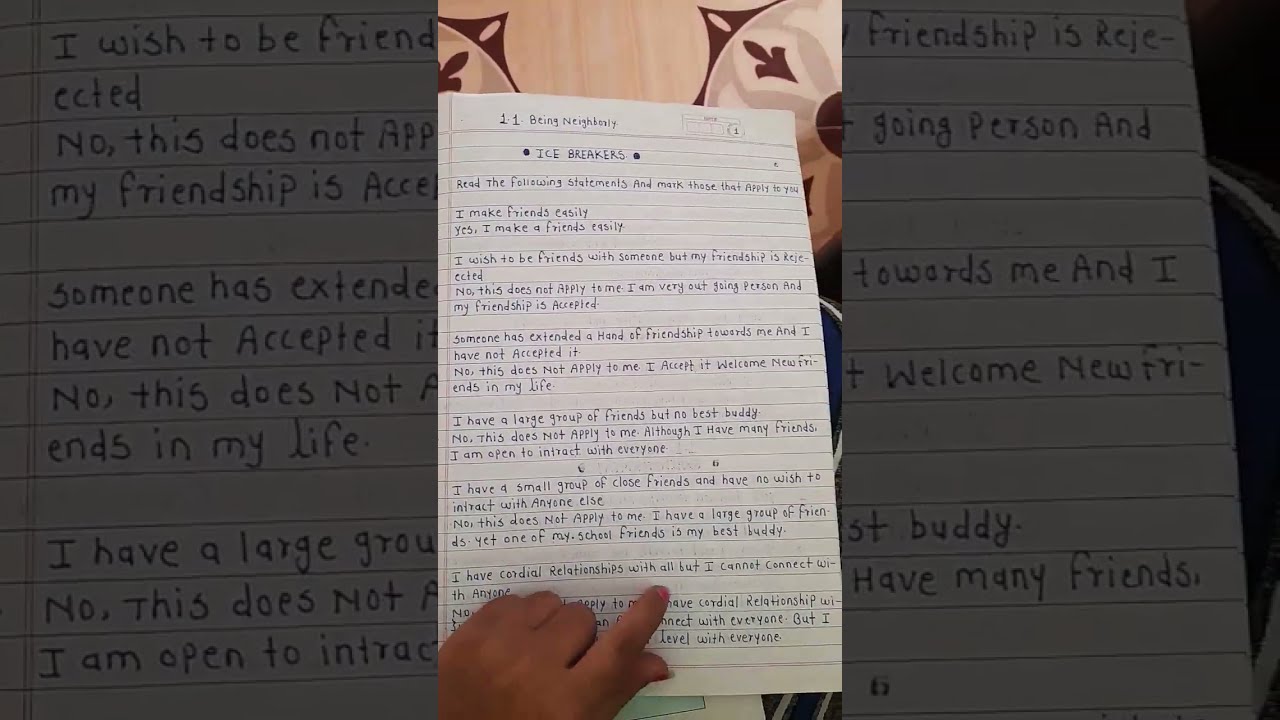 1.1. Being Neighborly.
DATE
1
• ICE BREAKERS. •
Read The Following statements And mark those that Apply to you
I make friends easily
Yes, I make a friends easily
I wish to be friends with someone but my friendship is Reje-
ected
No, this does not Apply to me. I am very out going Person And
my friendship is Accepted.
Someone has extended a Hand of friendship towards me And I
have not Accepted it.
No, this does Not Apply to me. I Accept it Welcome New fri-
ends in my life.
I have a large group of friends but no best buddy.
No, This does Not Apply to me. Although I Have many friends,
I am open to intract with everyone.
I have a small group of close friends and have no wish to
intract with Anyone else
No, this does Not Apply to me. I have a large group of frien-
ds. yet one of my school friends is my best buddy.
I have cordial Relationships with all but I cannot connect wi-
th Anyone
No, Apply to me have cordial Relationship wi-
connect with everyone. But I
level with everyone.